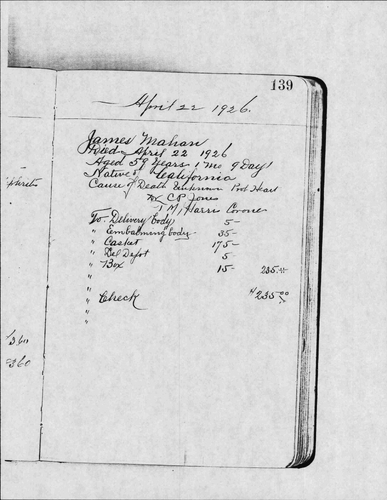 139
April 22 1926.
James Mahan
Died April 22 1926
Aged 59 Years 1 mo 9 Days
Native of California
Cause of Death Unknown Heart
C P Jones
T M Harris Coroner
To Delivery body 5-
" Embalming body. 35-
" Casket 175-
" Del Depot 5
" Box 15- 235.00
"
" Check 235.00
"
"
360
360